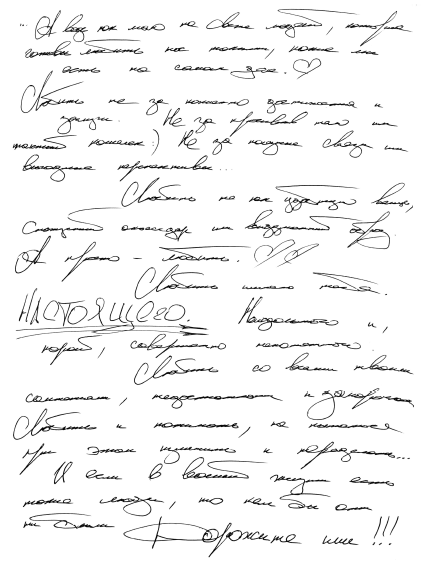 "А ведь как мало на свете людей, которые
готовы любить нас такими, какие мы
есть на самом деле. ♡
Любить не за какие-то достижения и
заслуги. Не за красивые или
толстый кошелек :) Не за нужные связи или
выгодные перспективы...
Любить не как удачную вещь,
статусный аксессуар или выдуманный образ.
А просто - любить. ♡♡
Любить именно тебя.
НАСТОЯЩЕГО. Неидеального и,
порой, совершенно непонятного.
Любить со всеми твоими
, недостатками и
Любить и понимать, не пытаясь
при этом изменить и переделать...
И если в вашей жизни есть
такие люди, то кем бы они
ни были
Дорожите ими!!!